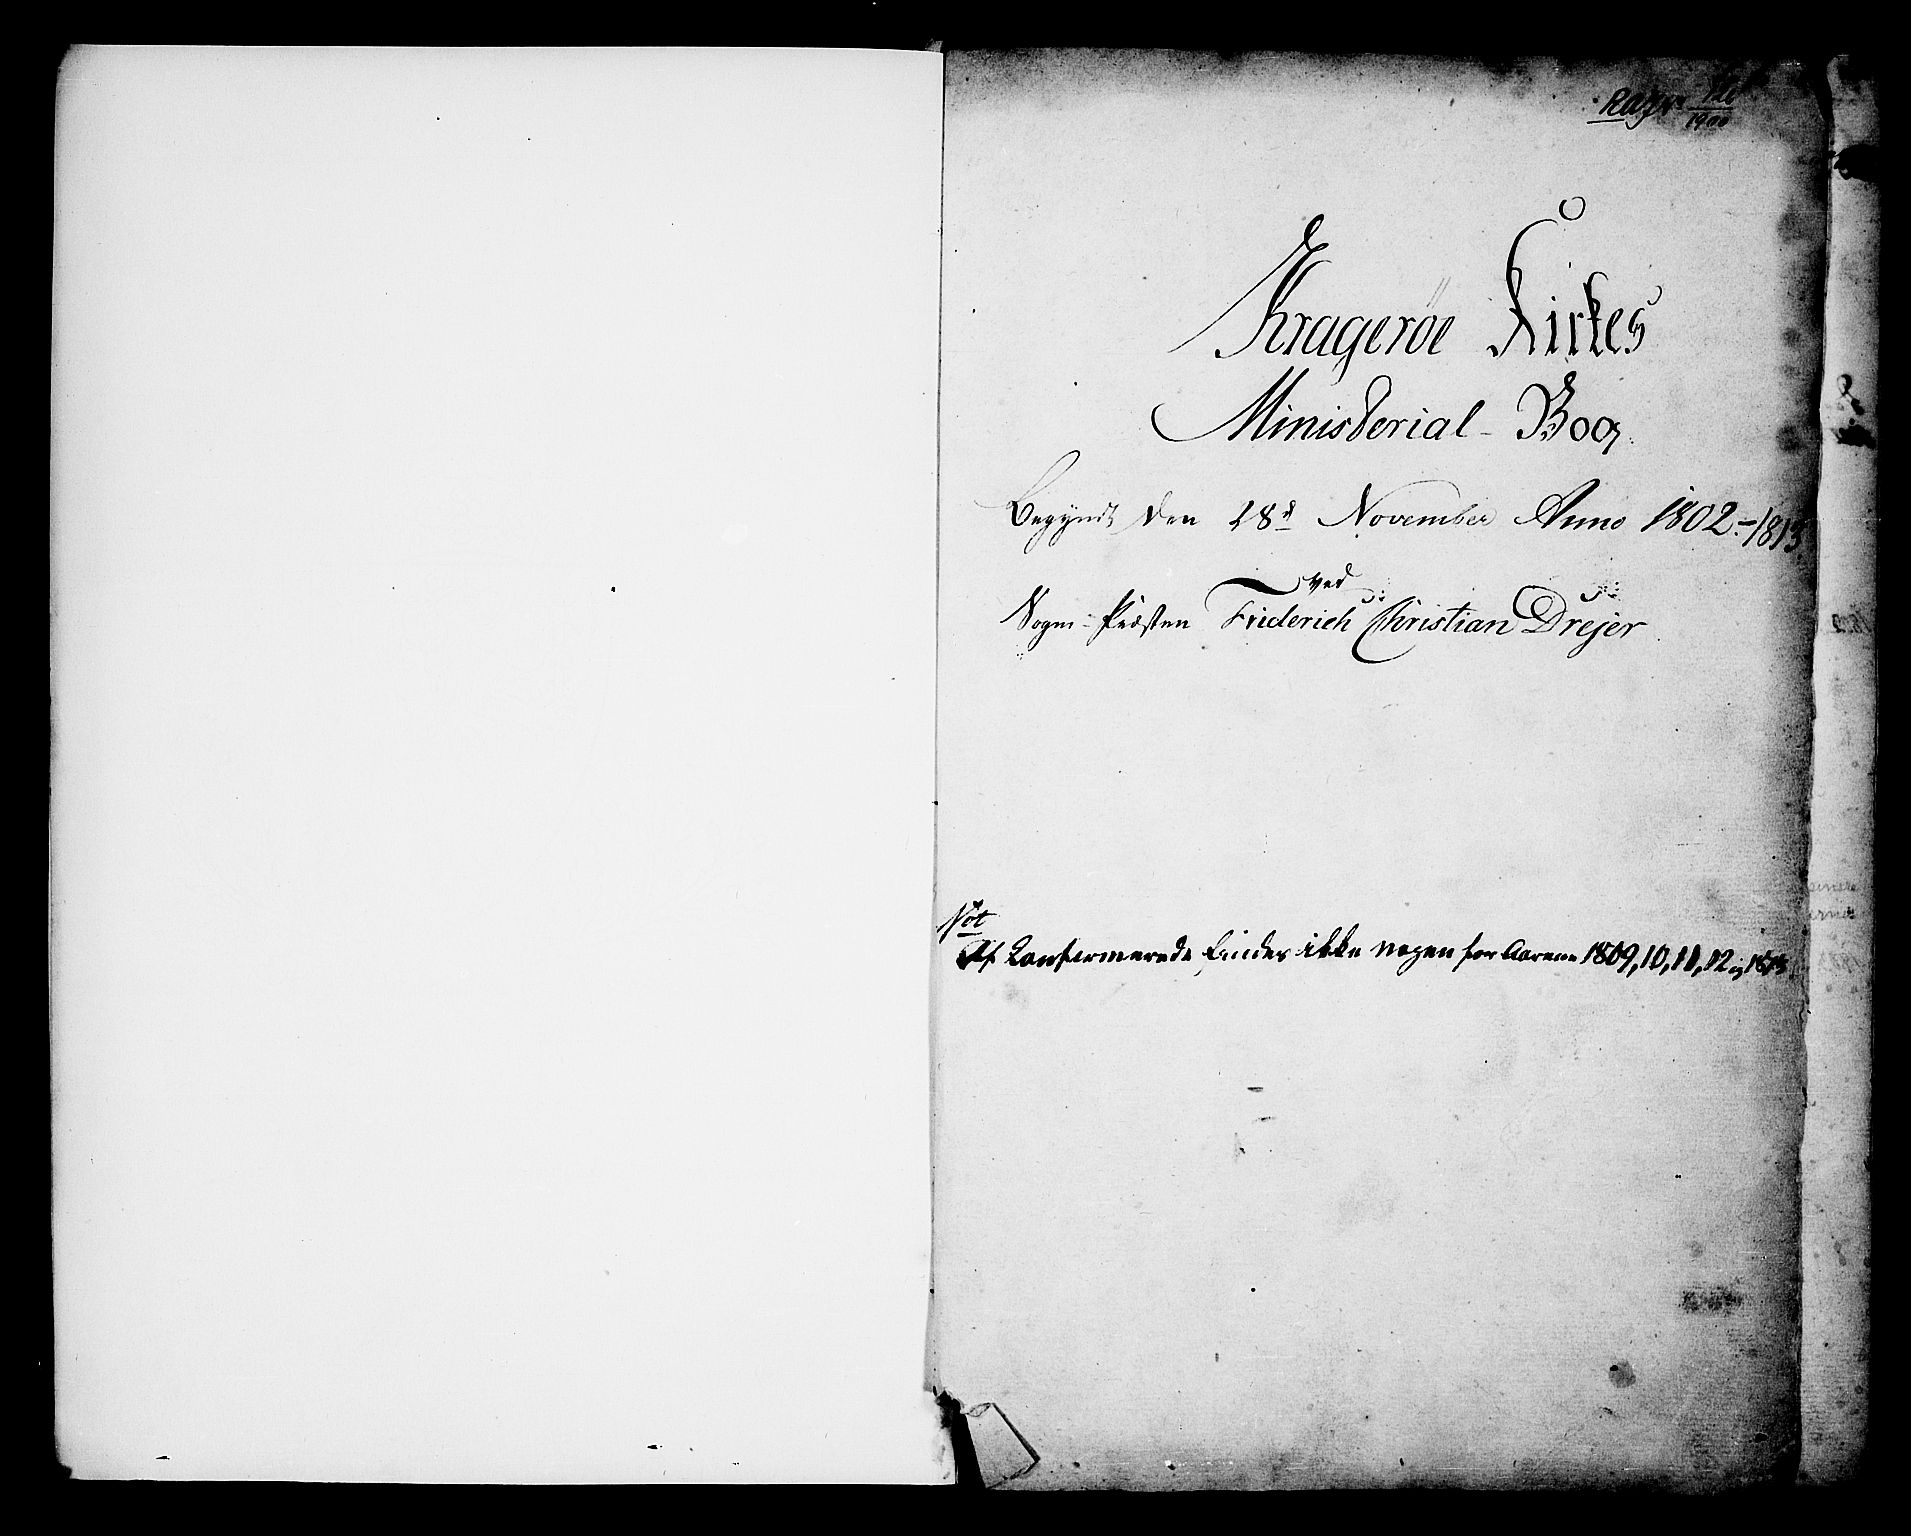 1900
Kragerøe Kirkes
Ministerial-Bog.
Begyndt den 28d November Anno 1802.-1813
ved
Sogne-Præsten Friderich Christian Drejer.
Not
Af Konfirmerede findes ikke nogen for Aarene 1809, 10, 11, 12 og 1813